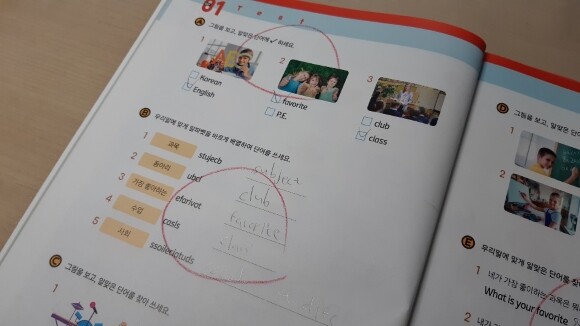 01 Test
A 그림을 보고, 알맞은 단어에 ✓ 하세요.
1 2 3
Korean
English
favorite
P.E.
club
class
B 우리말에 맞게 알파벳을 바르게 배열하여 단어를 쓰세요.
1 과목 stujecb subject
2 동아리 ubcl club
3 가장 좋아하는 efarivot favorite
4 수업 casls
5 사회 ssoileciatuds
C 그림을 보고, 알맞은 단어를 찾아 쓰세요.
1
D 그림을 보고, 알맞은
1
2
E 우리말에 맞게 알맞은 단어를
1 네가 가장 좋아하는 과목은
What is your favorite
2 네가